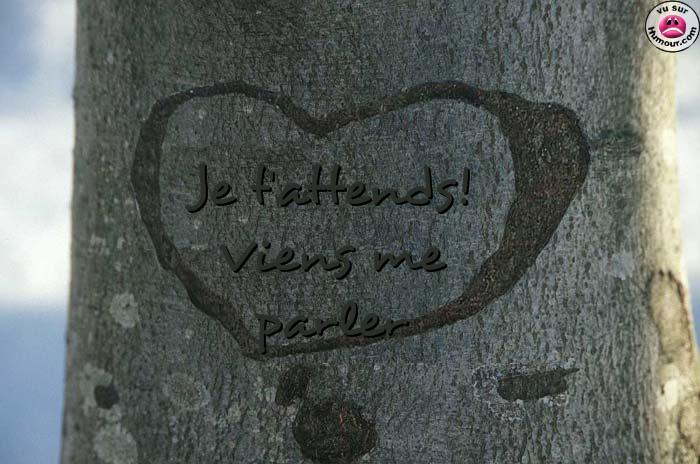 vu sur
Humour.com
Je t'attends!
Viens me
parler